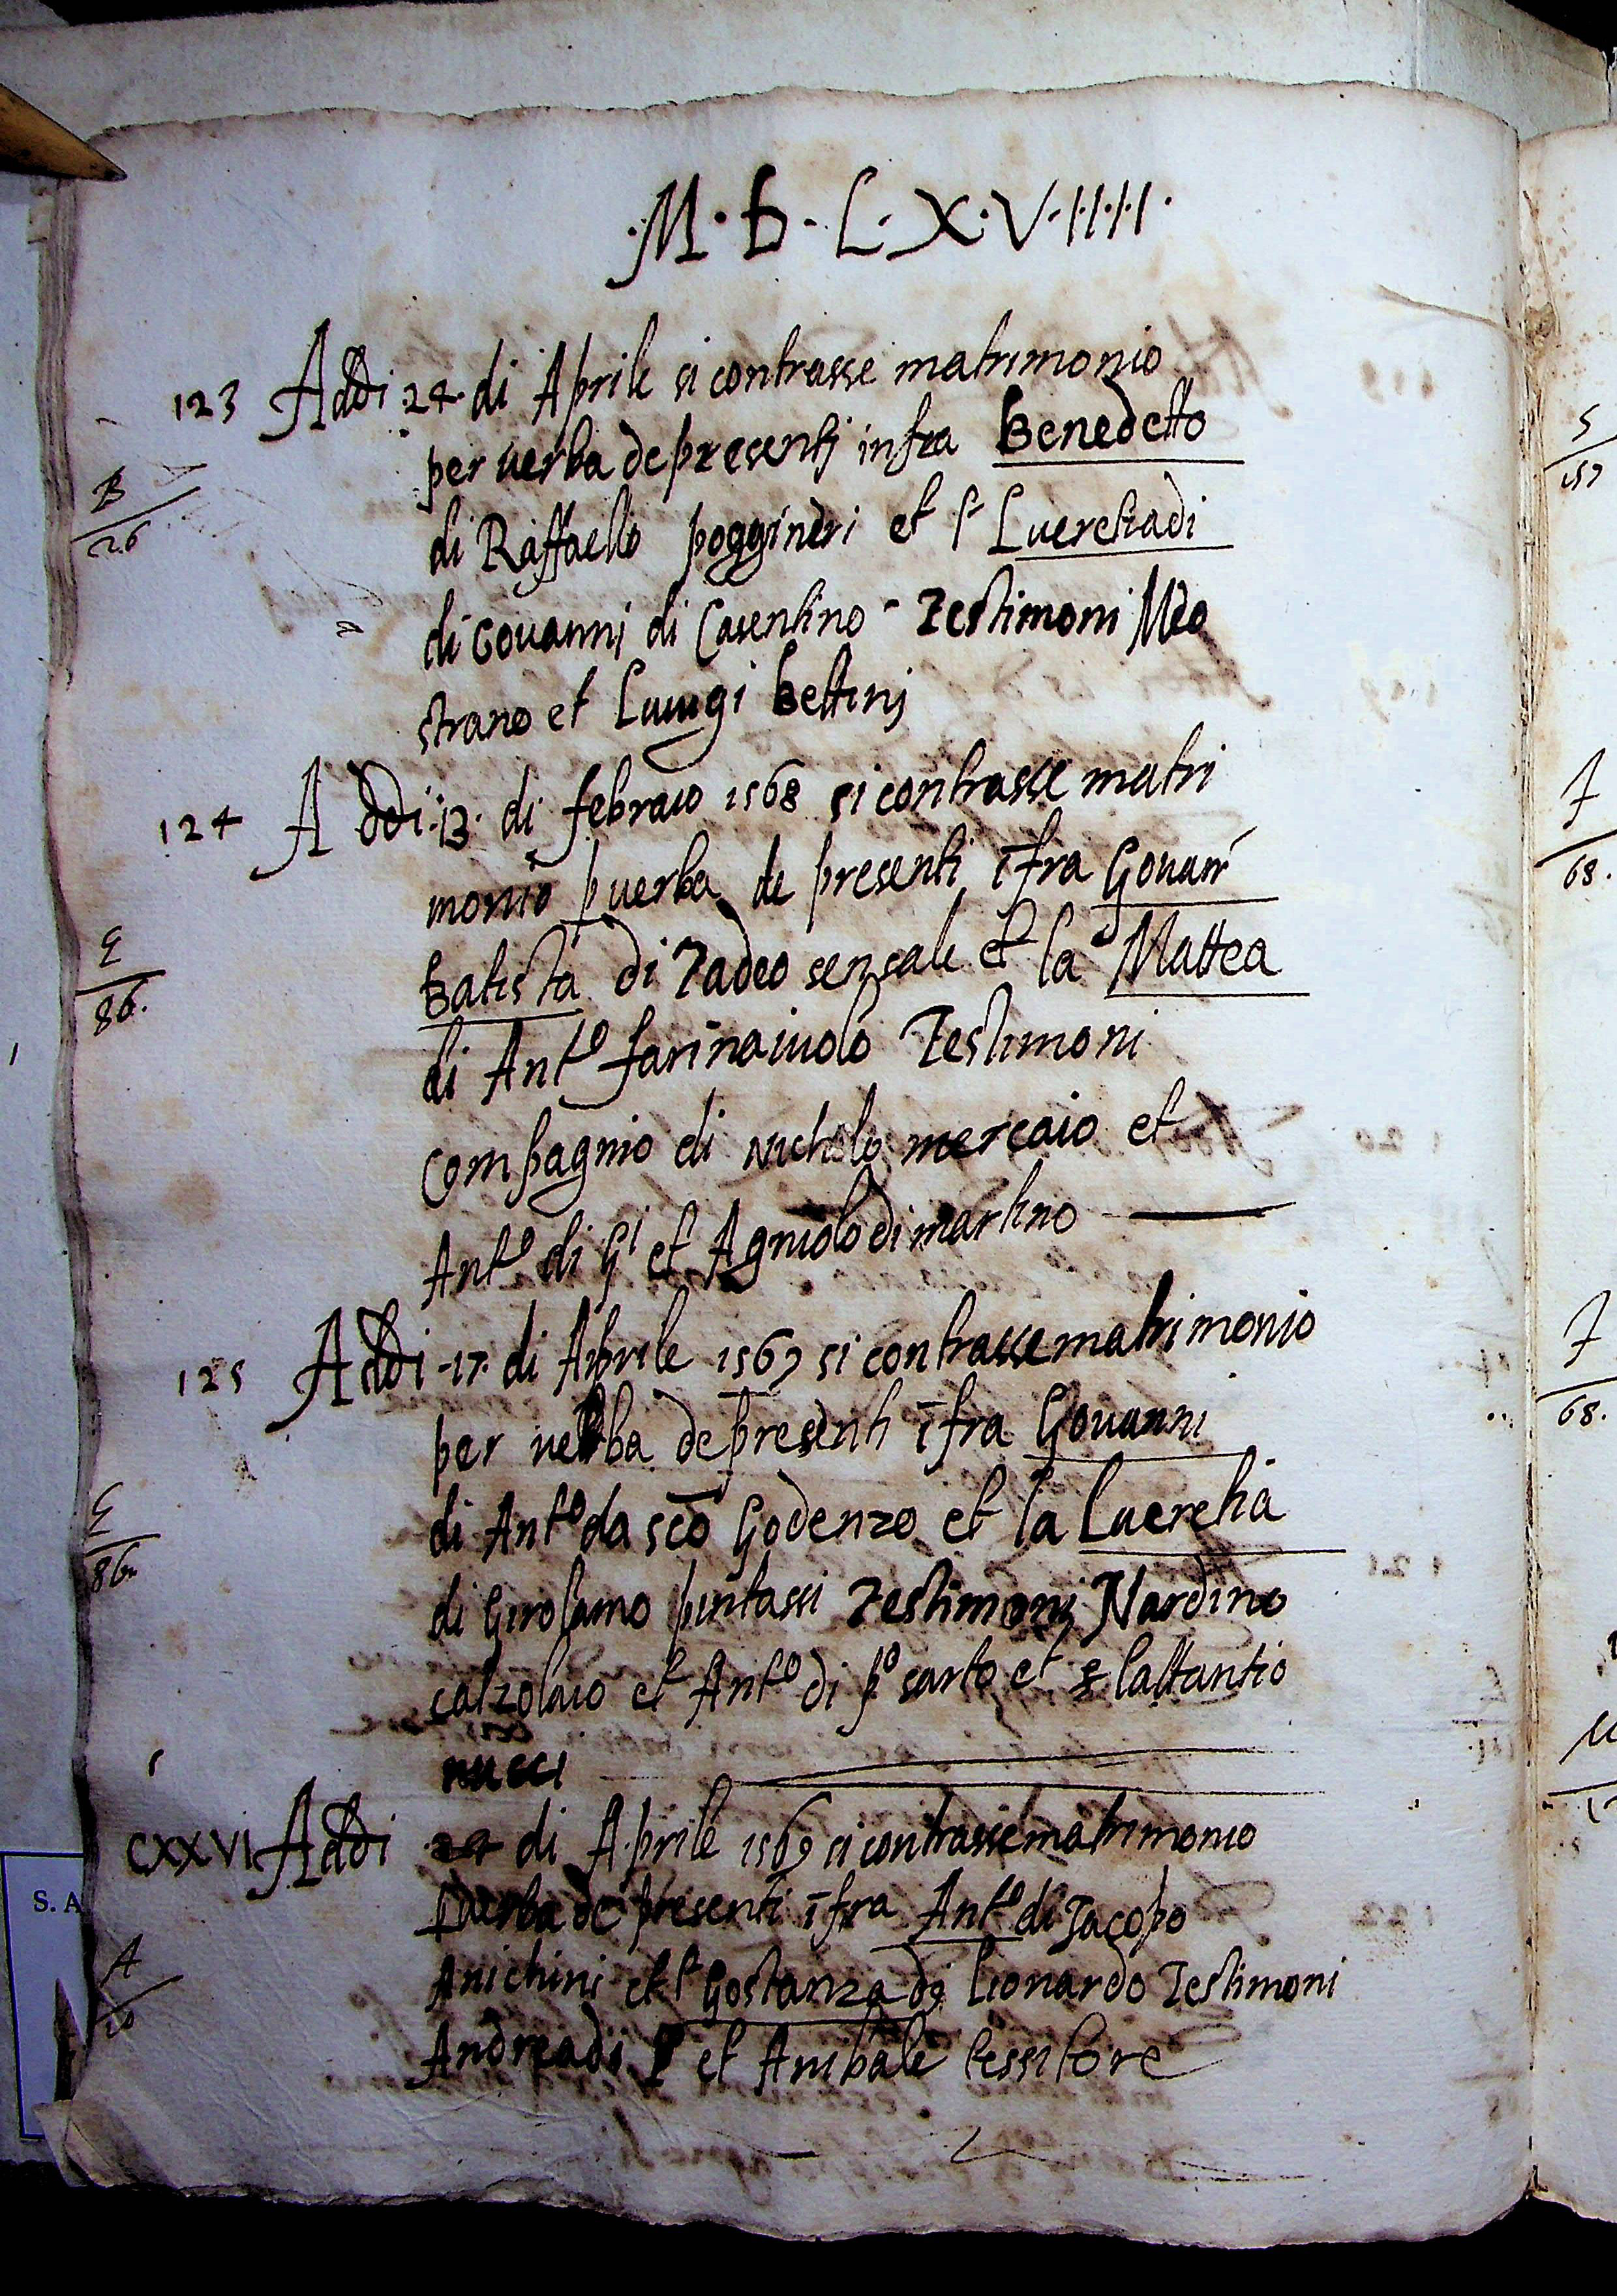 ·M·D·L·X·V·I·I·I·I·
123 Addi 24 di Aprile si contrasse matrimonio
per uerba de presentj infra Benedetto
B
26
di Raffaello poggindri et l Lucretiadi
di Gouannj di Casentino - Testimoni Meo
strano et Luuigi Bettinj
124 Addi 13 di febraio 1568 si contrasse matri
monio p uerba de presenti ĩfra Gouan
E
86.
Batista di Tadeo sensale et la Mattea
di Antº farinaiuolo Testimoni
Compagnio di Nicholo mercaio et
Antº di Gi et Agniolo di martino
125 Addi 17 di Aprile 1569 si contrasse matrimonio
per uerba de presenti ĩfra Gouanni
E
86
di Antº da Sc̃o Godenzo et la Lucretia
di Girolamo pintassi Testimonj Nardino
calzolaio et Antº di pº sarto et s lattantio
nucci
CXXVI Addi 24 di Aprile 1569 si contrasse matrimonio
p uerba de presenti ĩfra Antº di Jacopo
A
20
Anichini et l Gostanza di Lionardo Testimoni
Andreadi P et Anibale tessitore
S
157
f
68.
f
68.
S. A